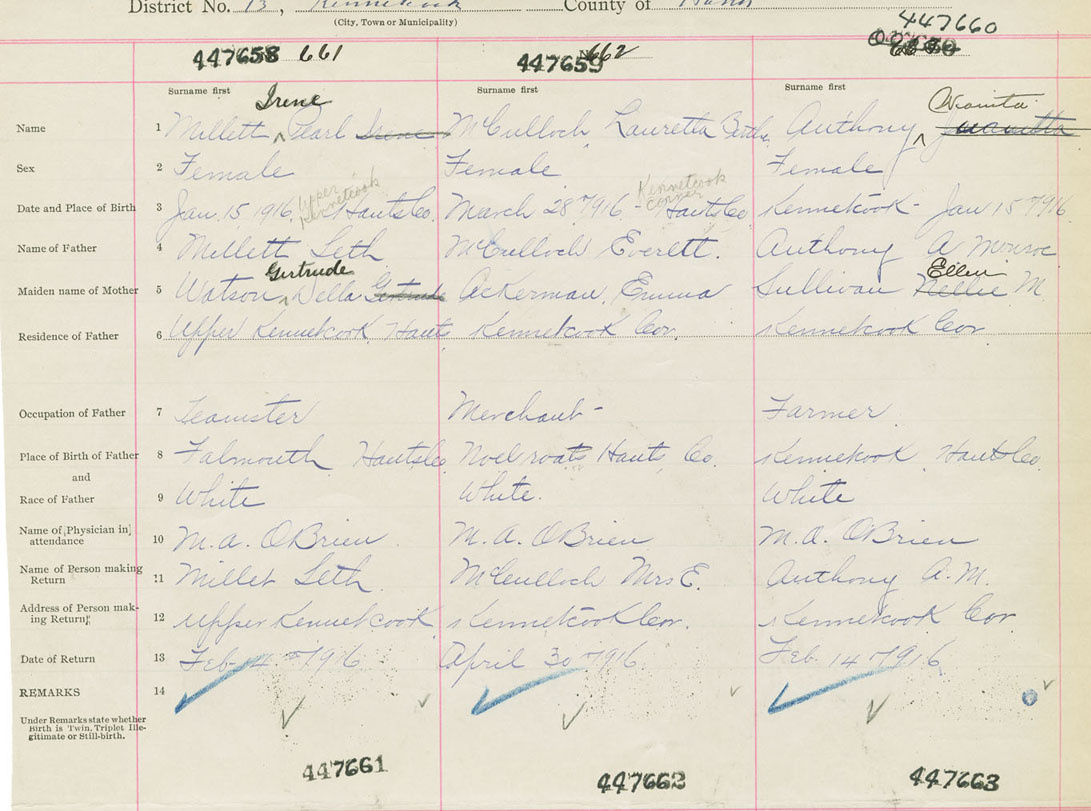 District No. 13, Kennetcook County of Hants
(City, Town or Municipality)
447660
447658 661 447659 662
Surname first Surname first Surname first
Irene
Name 1 Millett ^ Pearl Irene McCulloch Lauretta Bertha Anthony ^ Juanitta
Sex 2 Female Female Female
Upper Kennetcook Kennetcook Corner
Date and Place of Birth 3 Jan. 15 1916, Hants Co. March 28th 1916 - Hants Co Kennetcook - Jan 15th 1916
Name of Father 4 Millett Seth McCulloch Everett. Anthony A Monroe
Gertrude Ellen
Maiden name of Mother 5 Watson ^ Della Gertrude Ackerman, Emma Sullivan Nellie M
Residence of Father 6 Upper Kennetcook Hants Kennetcook Cor. Kennetcook Cor
Occupation of Father 7 Teamster Merchant - Farmer
Place of Birth of Father 8 Falmouth Hants Co Noel road Hants Co. Kennetcook Hants Co.
and
Race of Father 9 White White. White
Name of Physician in attendance 10 M. A. OBrien M. A. OBrien M. A. OBrien
Name of Person making Return 11 Millet Seth McCulloch Mrs E. Anthony A. M.
Address of Person making Return 12 Upper Kennetcook Kennetcook Cor. Kennetcook Cor
Date of Return 13 Feb. 4th 1916 April 30th 1916 Feb. 14th 1916
REMARKS 14
Under Remarks state whether
Birth is Twin, Triplet Ille-
gitimate or Still-birth.
447661 447662 447663